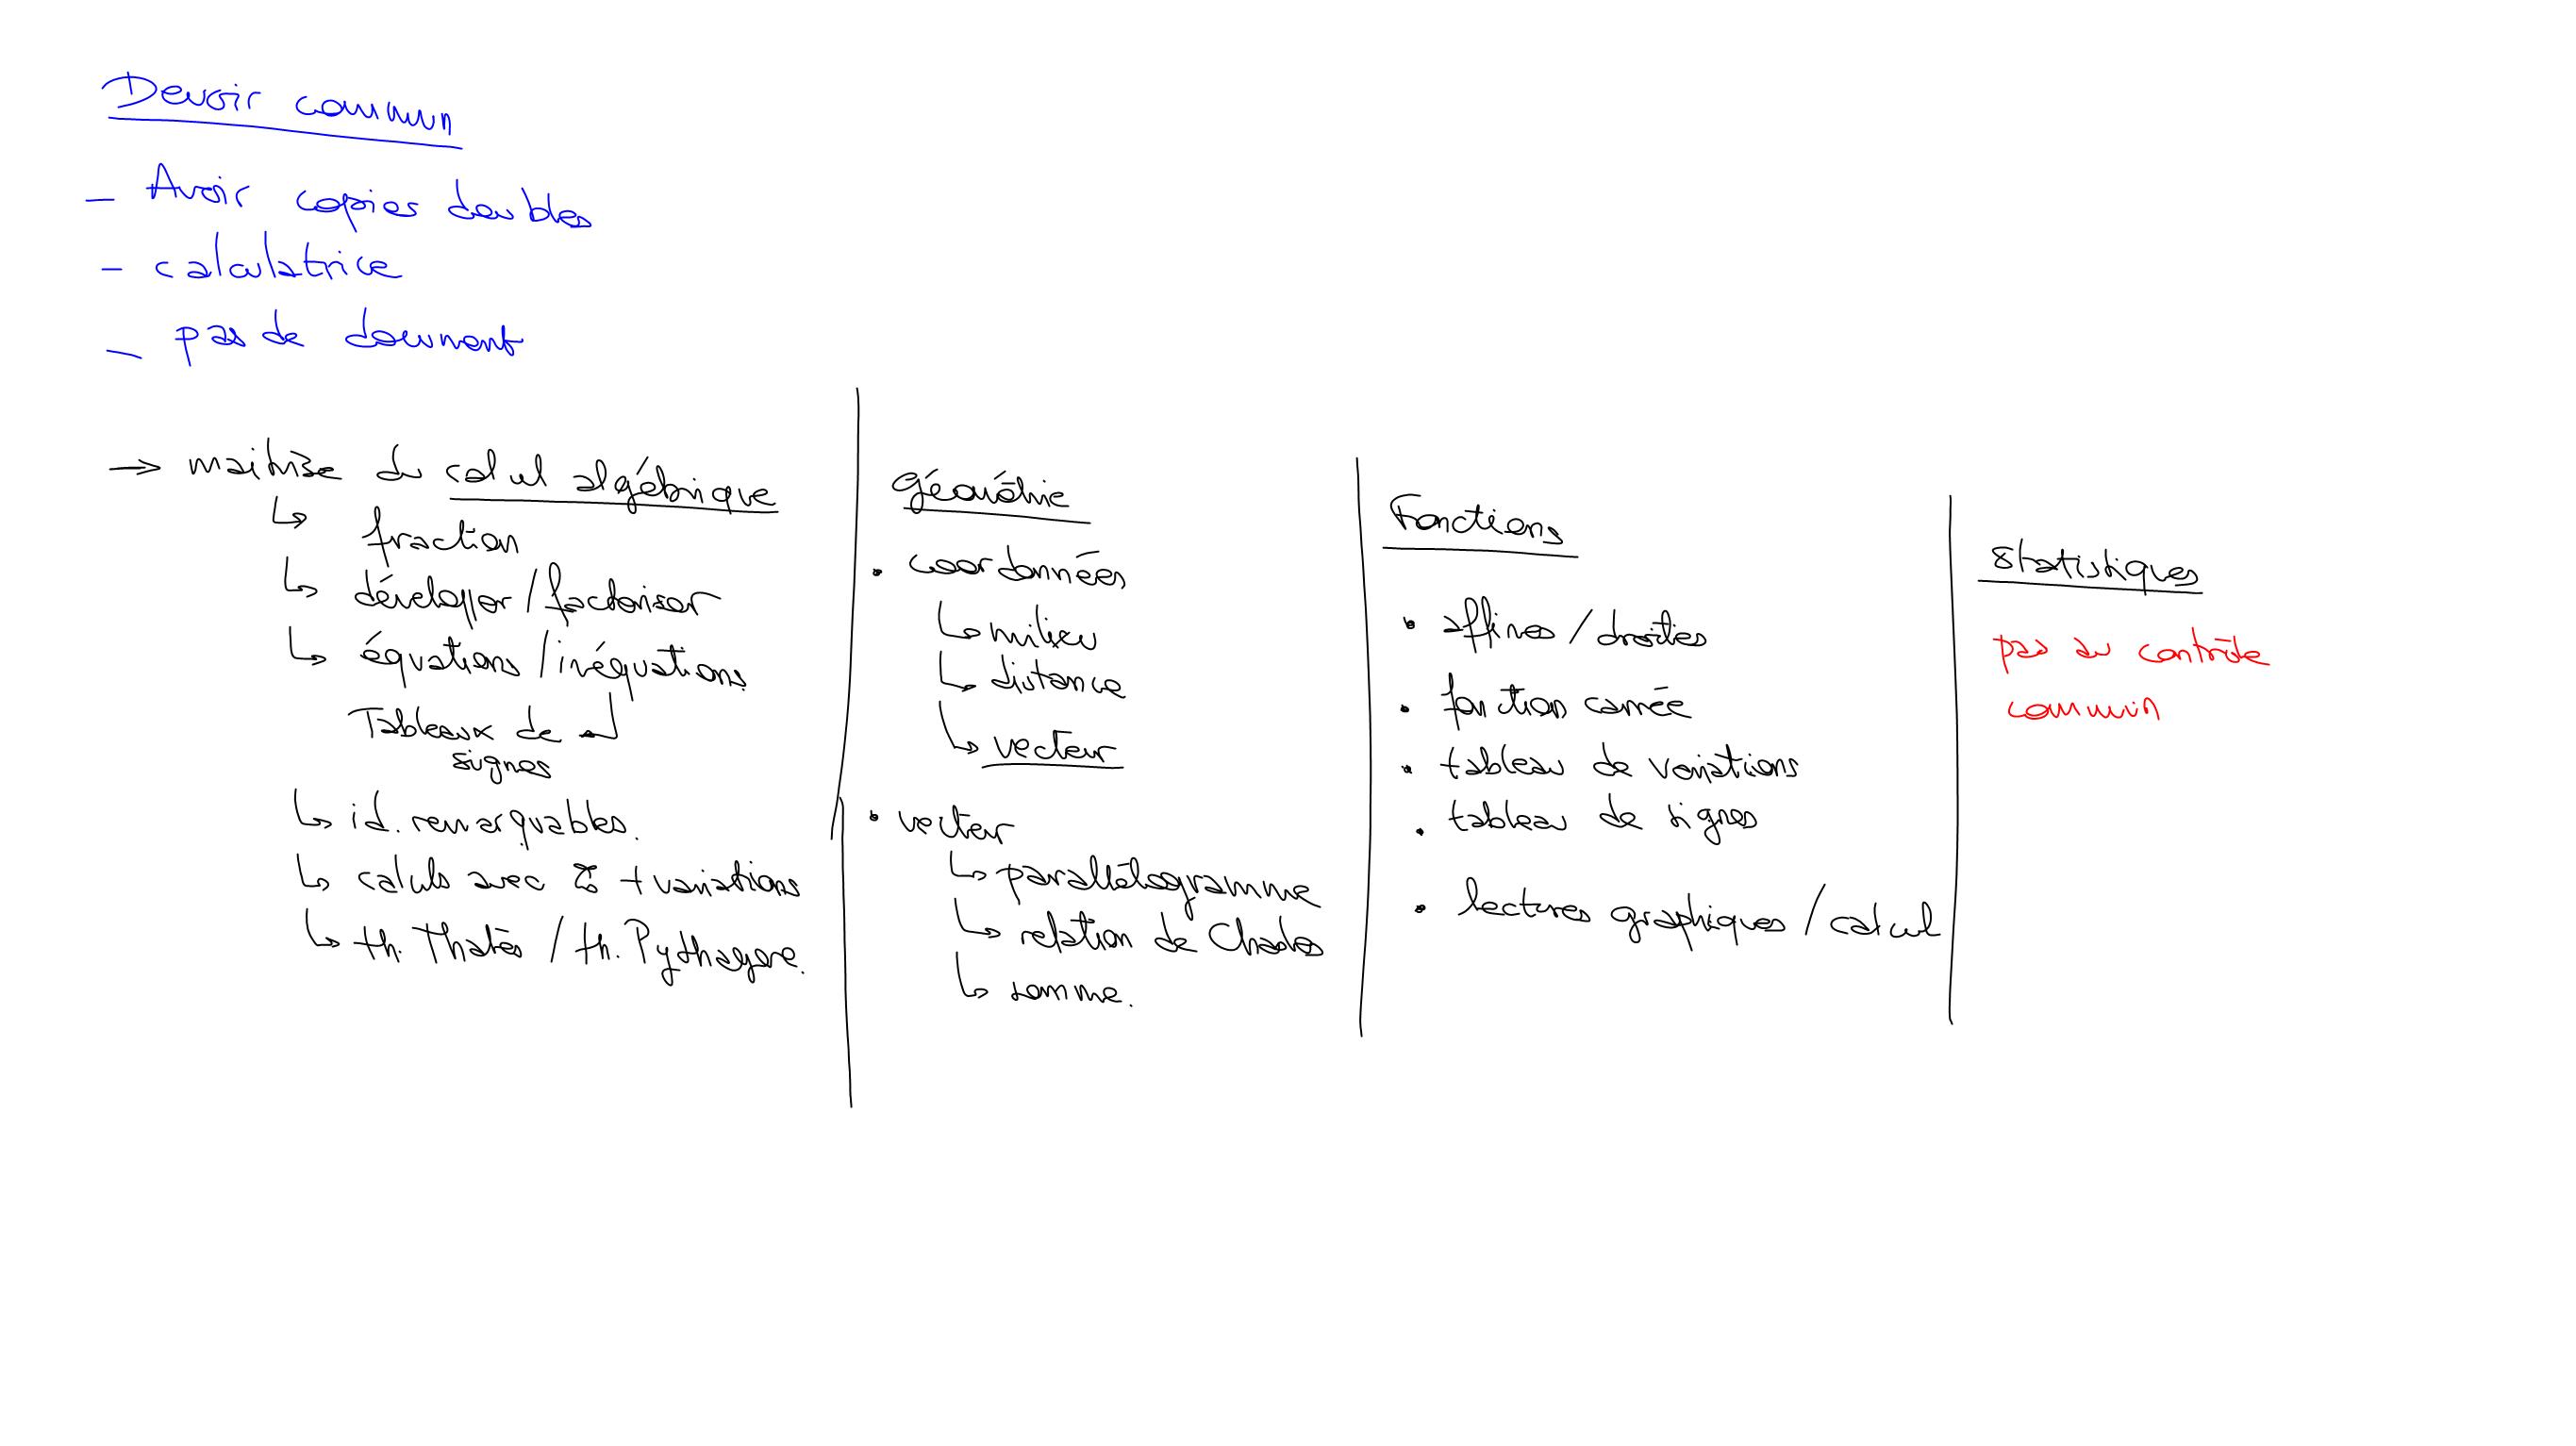 Devoir commun
- Avoir copies doubles
- calculatrice
- pas de document
→ maitrise du calcul algébrique
↳ fraction
↳ développer / factoriser
↳ équations / inéquations
Tableaux de
signes
↳ id. remarquables.
↳ calculs avec % + variations
↳ th. Thalès / th. Pythagore.
Géométrie
• coordonnées
↳ milieu
↳ distance
↳ vecteur
• vecteur
↳ parallélogramme
↳ relation de Chasles
↳ somme.
Fonctions
• affines / droites
• fonction carrée
• tableau de variations
• tableau de signes
• lectures graphiques / calcul
Statistiques
pas au contrôle
commun